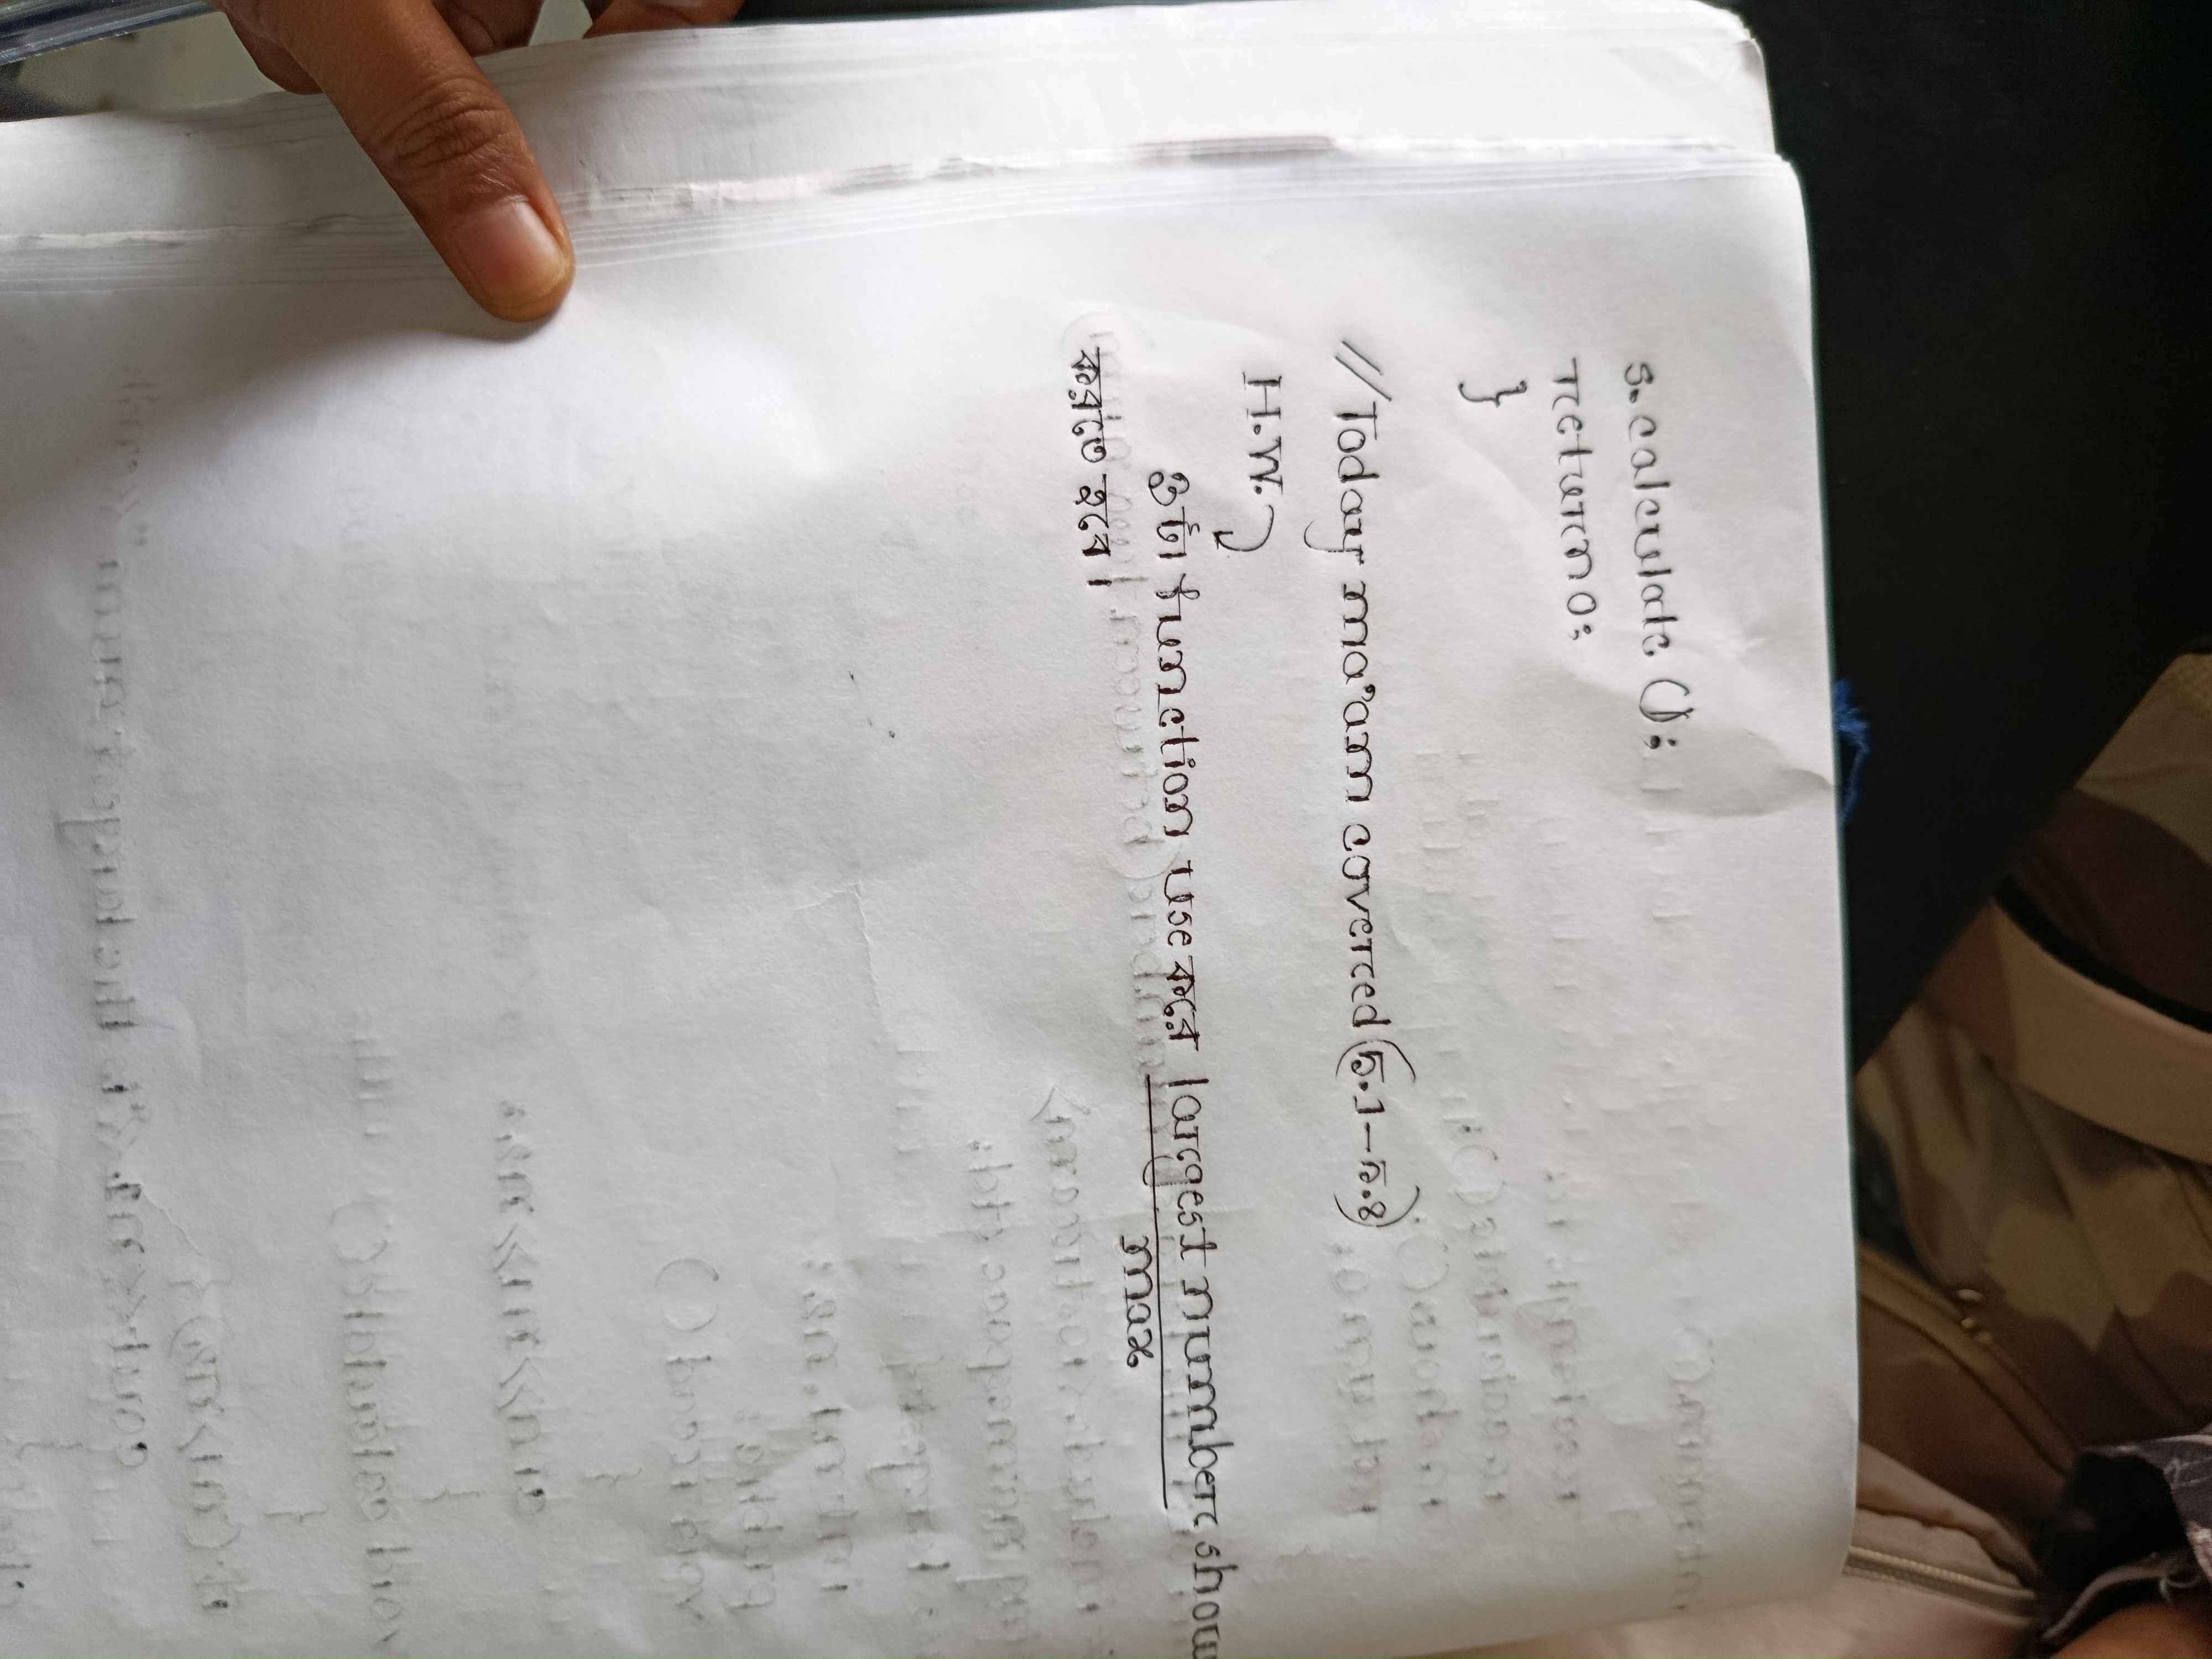 s.calculate ();
return 0;
}
// Today ma'am covered (5.1-5.8)
H.W.
৩টা function use করে largest number show
max
করতে হবে।